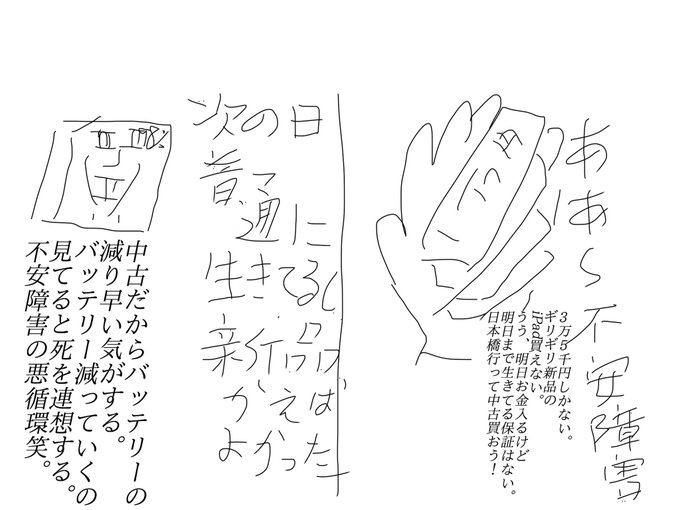 ああ〜不安障害
3万5千円しかない。
ギリギリ新品の
iPad買えない。
うう、明日お金入るけど
明日まで生きてる保証はない。
日本橋行って中古買おう!
次の日
普通に
生きてるし
新品
かえば
よかった
中古だからバッテリーの
減り早い気がする。
バッテリー減っていくの
見てると死を連想する。
不安障害の悪循環笑。